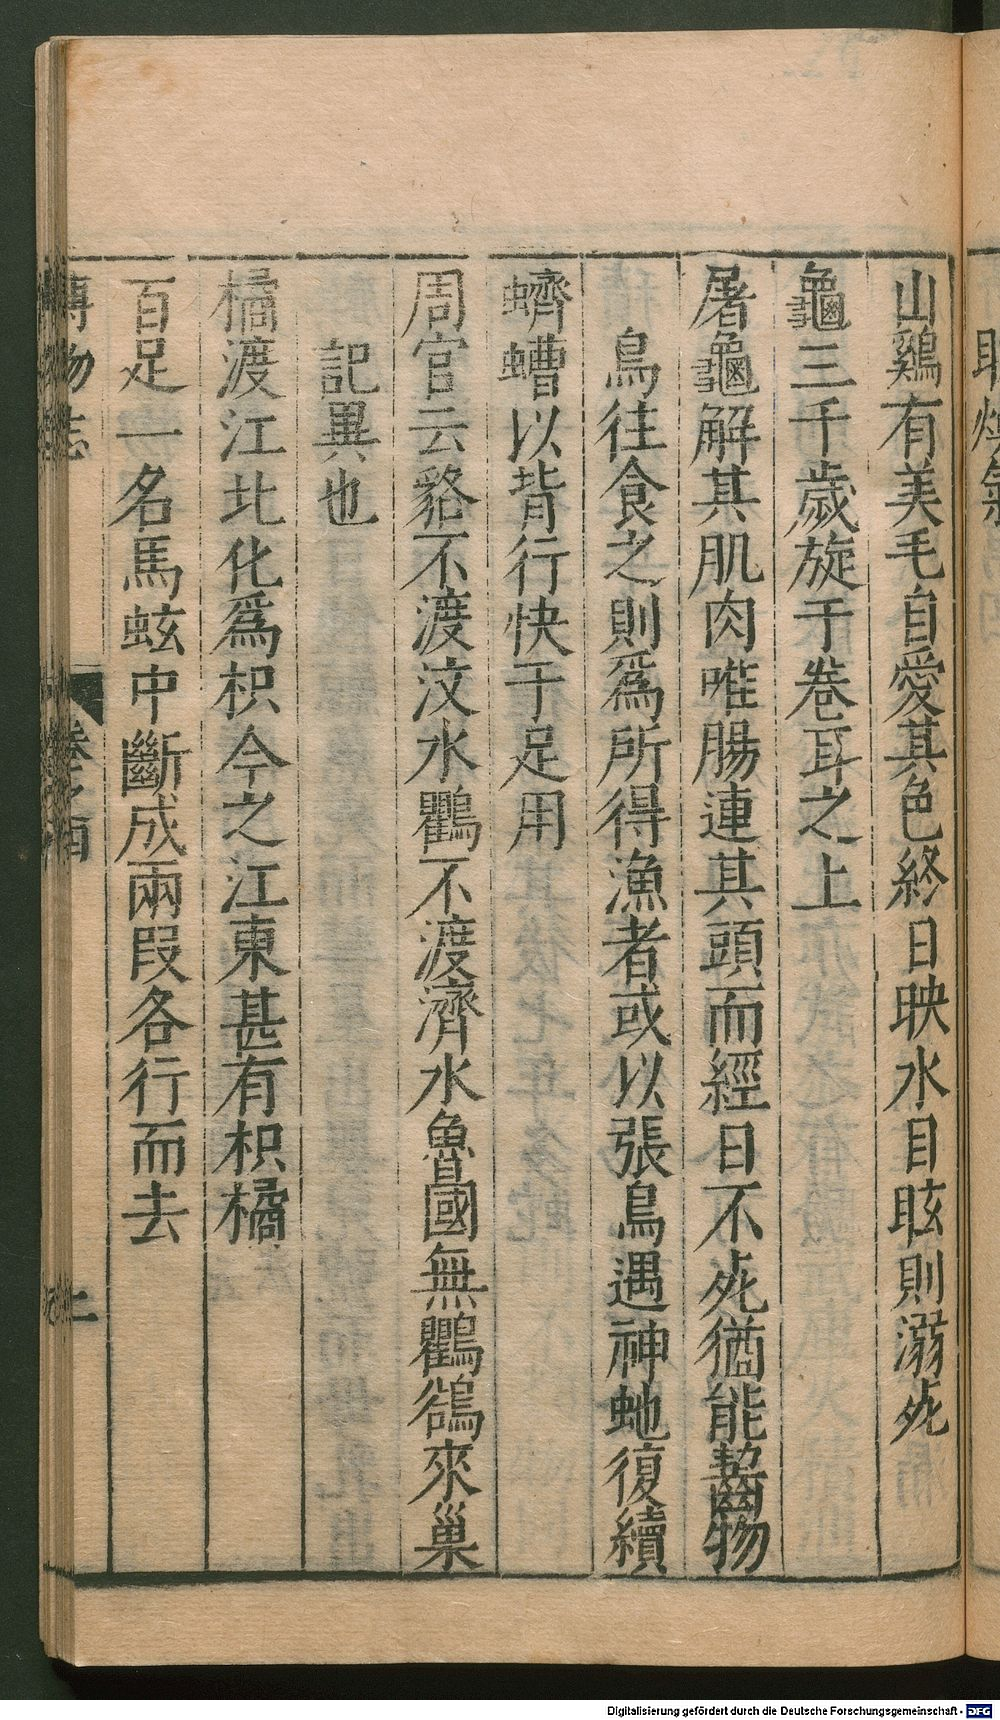 山鷄有美毛自愛其色終日映水目眩則溺死
龜三千歲旋于卷耳之上
屠龜解其肌肉唯腸連其頭而經日不死猶能齧物
鳥往食之則爲所得漁者或以張鳥遇神虵復續
蠐螬以背行快于足用
周官云貉不渡汶水鸜不渡濟水魯國無鸜鵒來巢
記異也
橘渡江北化爲枳今之江東甚有枳橘
百足一名馬蚿中斷成兩段各行而去
博物志
卷之四
二
Digitalisierung gefördert durch die Deutsche Forschungsgemeinschaft - DFG